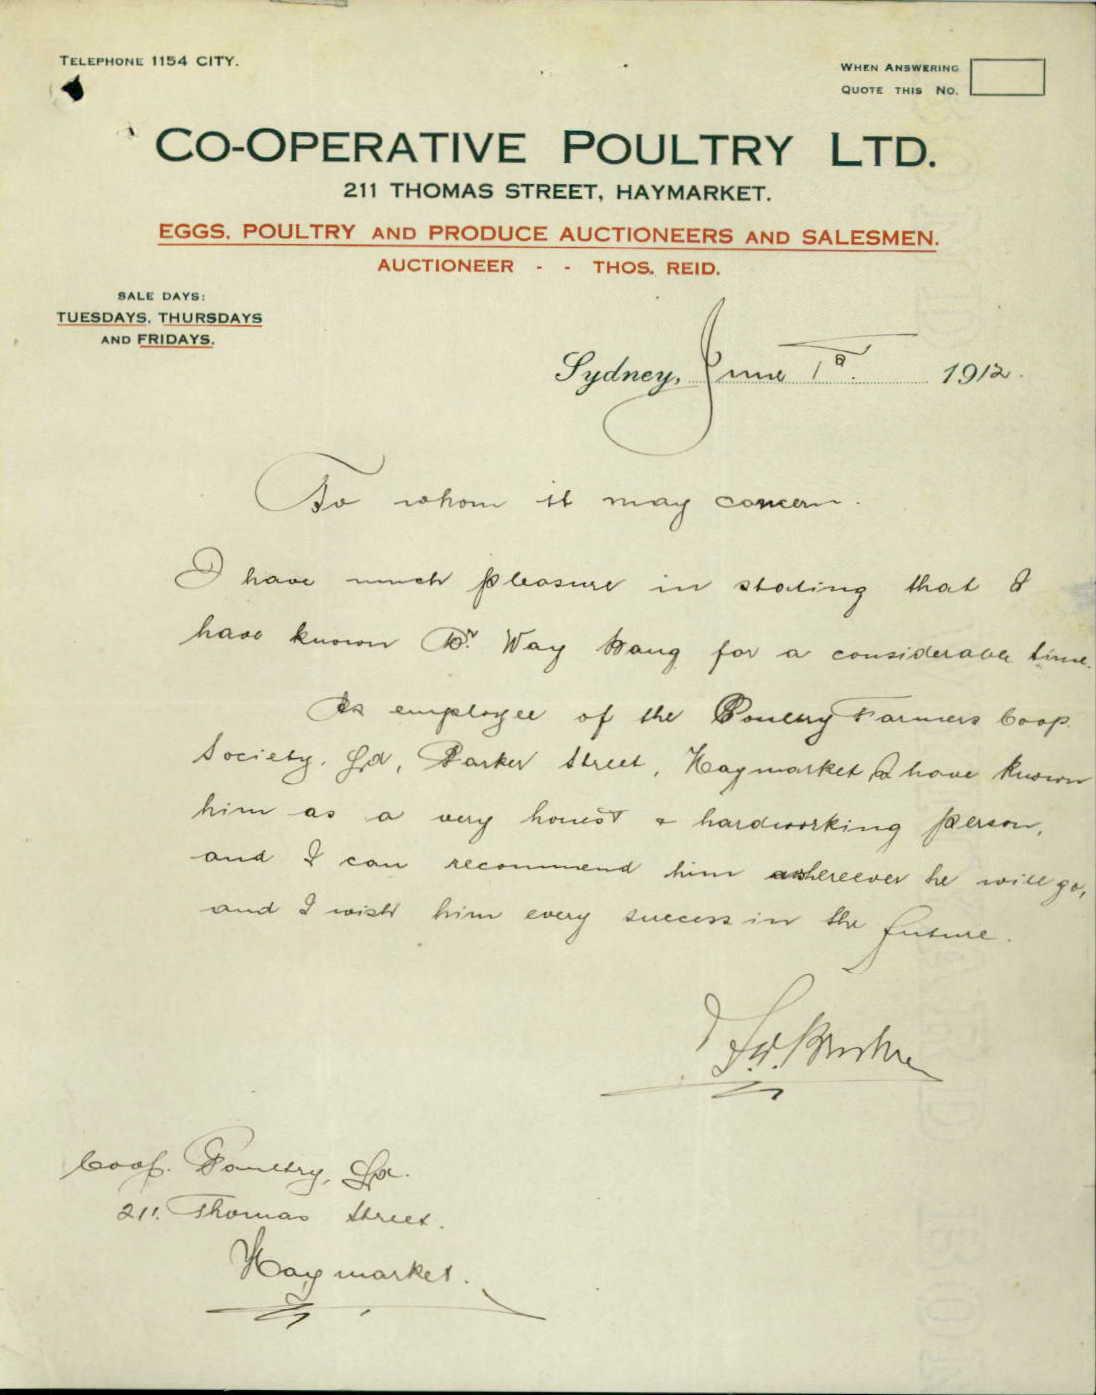 TELEPHONE 1154 CITY.
WHEN ANSWERING
QUOTE THIS NO.
CO-OPERATIVE POULTRY LTD.
211 THOMAS STREET, HAYMARKET.
EGGS, POULTRY AND PRODUCE AUCTIONEERS AND SALESMEN.
AUCTIONEER - - THOS. REID.
SALE DAYS:
TUESDAYS, THURSDAYS
AND FRIDAYS.
Sydney, June 1st. 1912.
To whom it may concern.
I have much pleasure in stating that I
have known Way for a considerable time.
As employee of the Poultry Farmers Coop.
Society. Ld, Parker Street, Haymarket, I have known
him as a very honest & hardworking person,
and I can recommend him whereever he will go,
and I wish him every success in the future.
Coop. Poultry, Ld.
211. Thomas Street.
Haymarket.